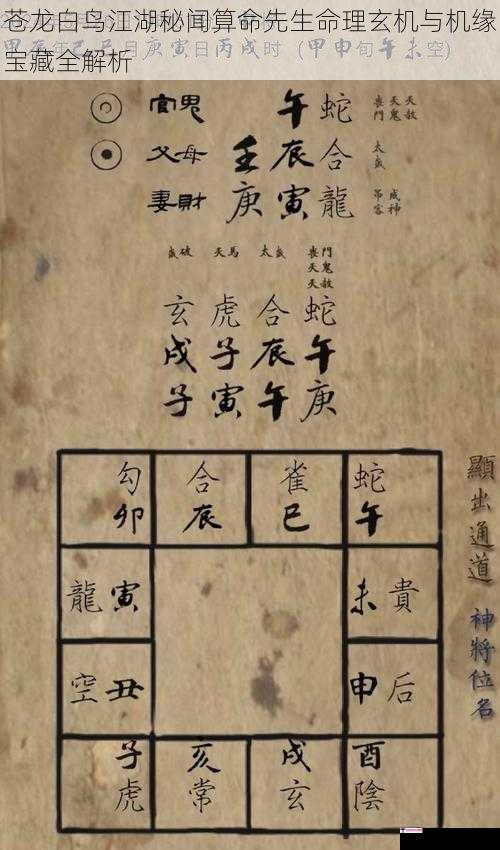 苍龙白鸟江湖秘闻算命先生命理玄机与机缘
宝藏全解析
甲辰年己巳月庚寅日丙戌时（甲申旬午未空）
官鬼 午 蛇 丧门 天鬼 天赦
父母 壬 辰 合 太歲
妻財 庚 寅 龍 吊客 成神
歲破 天馬 太歲 喪門 天鬼 天赦
玄 虎 合 蛇
戌 子 辰 午
子 寅 午 庚
勾 合 雀 蛇
卯 辰 巳 午
龍 寅 未 貴
空 丑 申 后
子 亥 戌 酉
虎 常 玄 陰
顯出通道
神將位名